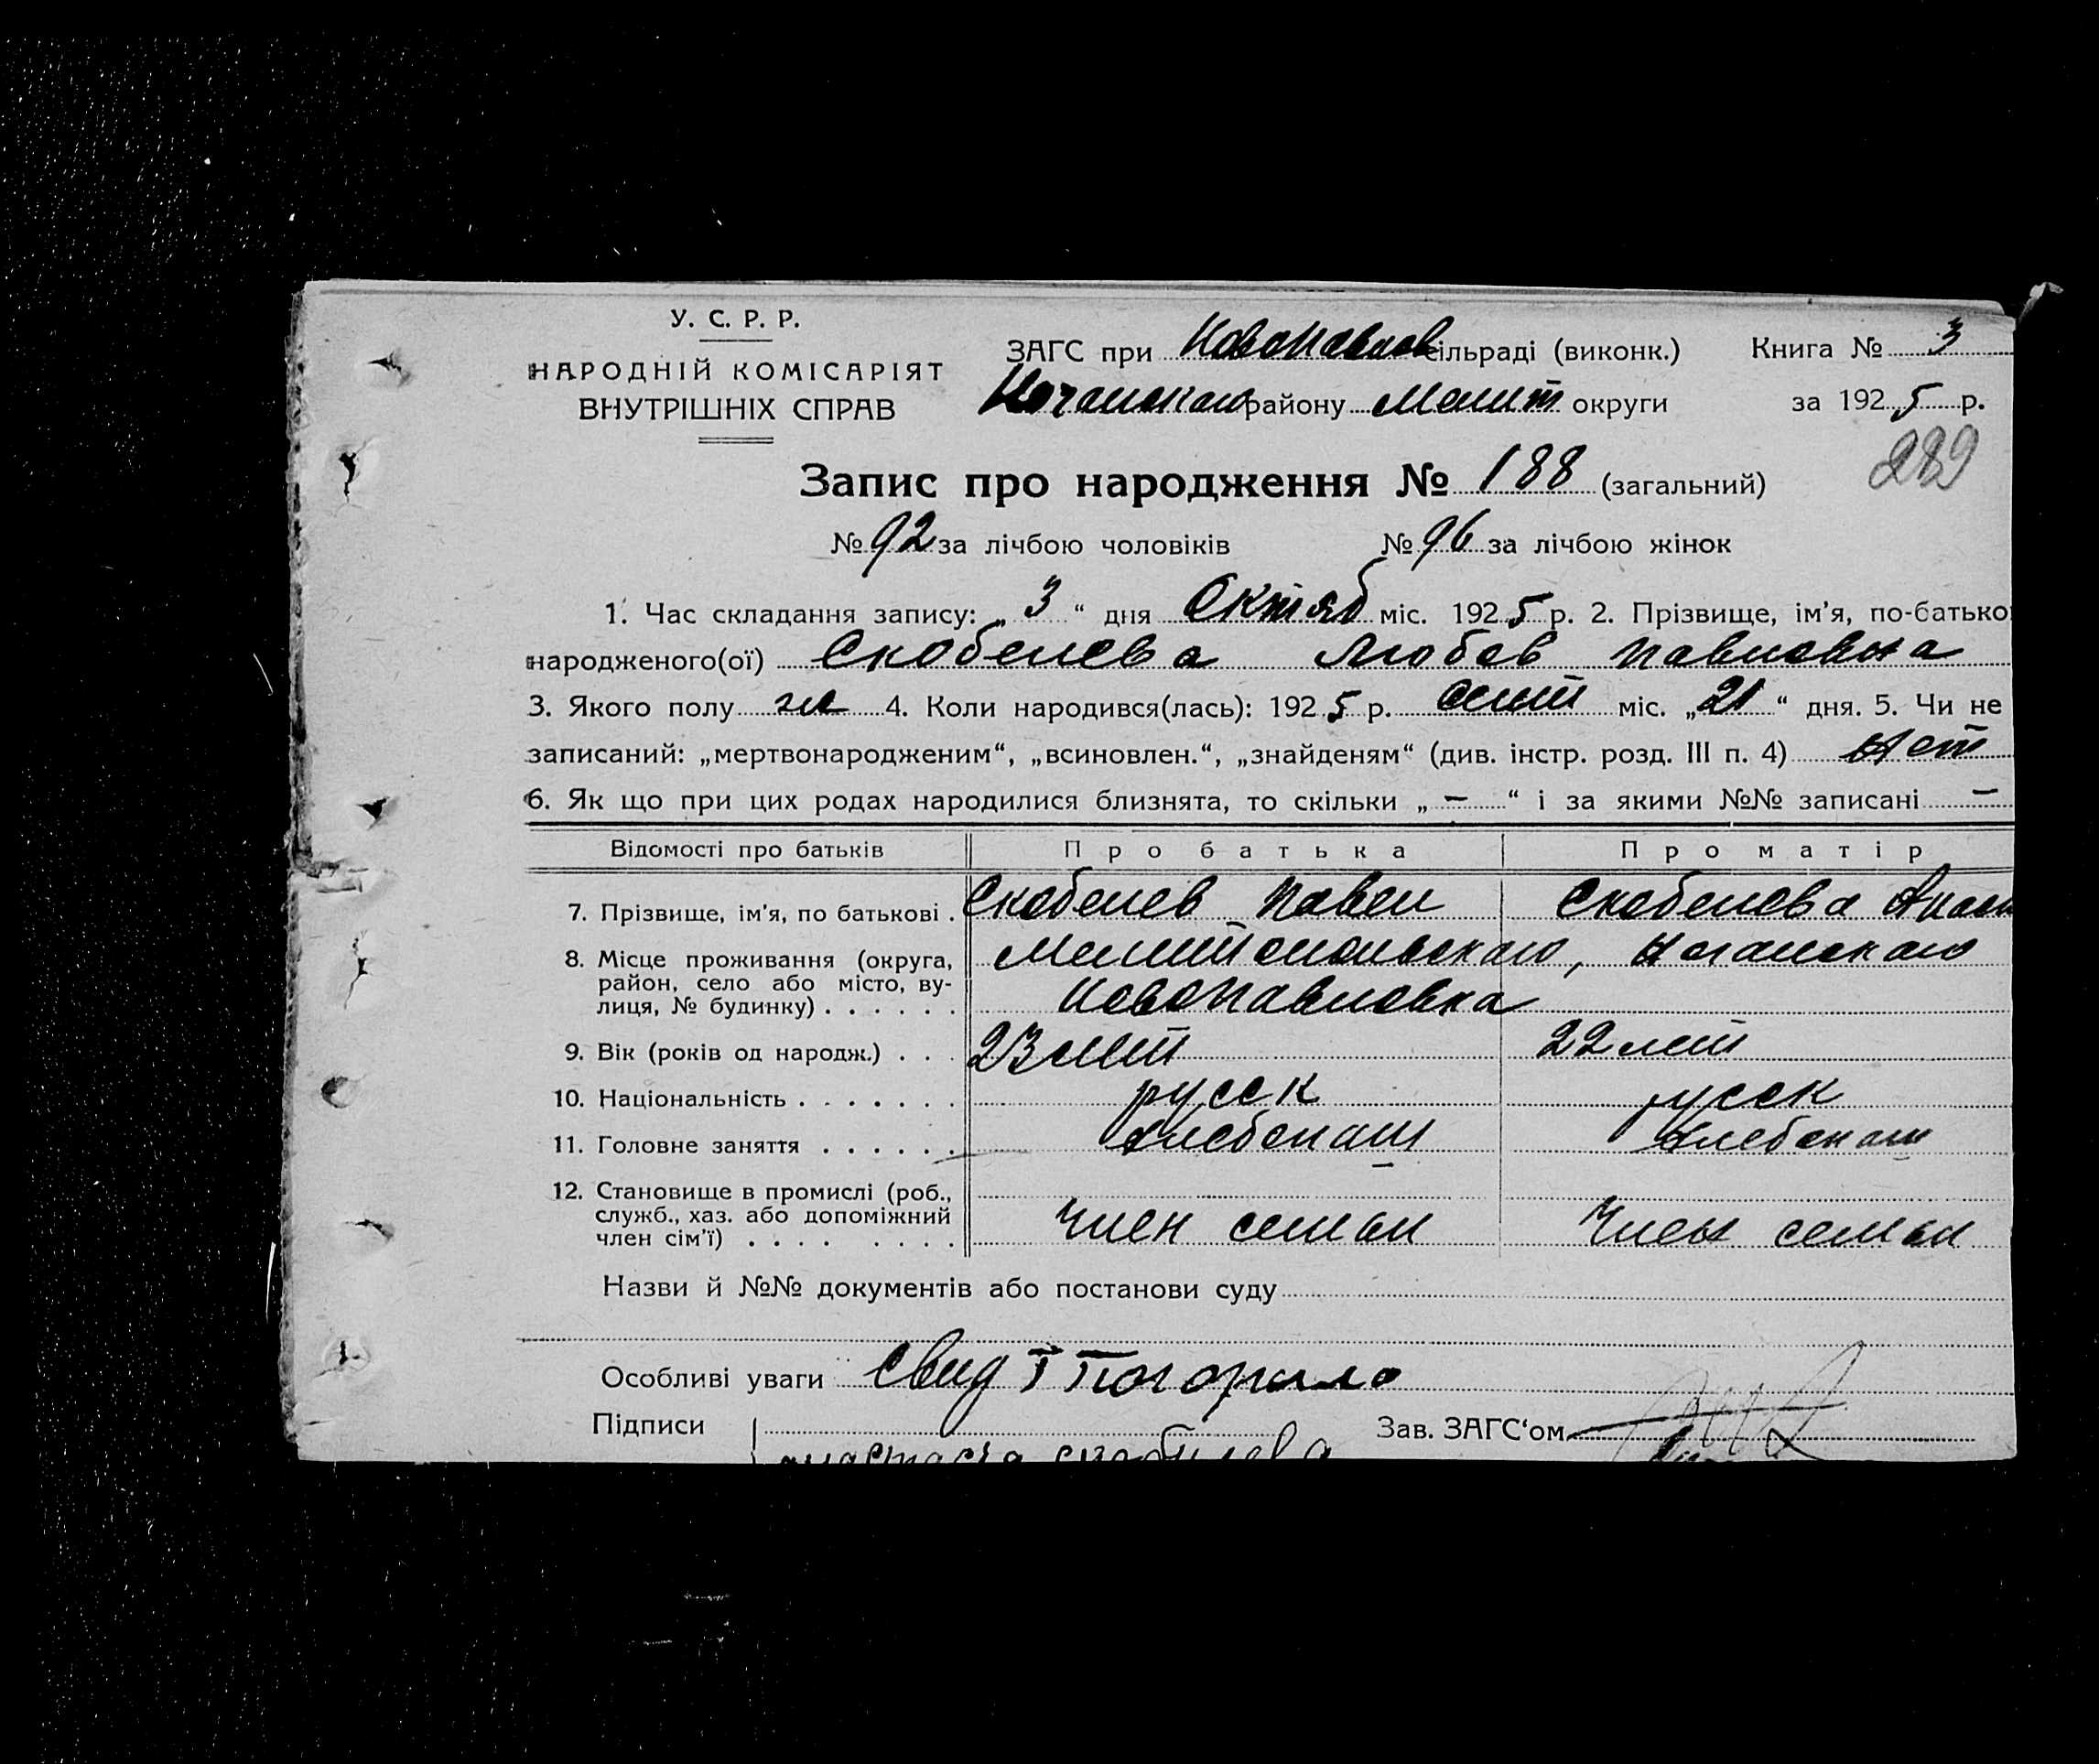 У. С. Р. Р.
НАРОДНІЙ КОМІСАРІЯТ
ВНУТРІШНІХ СПРАВ
ЗАГС при Новопавлов сільраді (виконк.) Книга № 3
Ногайскаго району Мелит округи за 1925 р.
289
Запис про народження № 188 (загальний)
№ 92 за лічбою чоловіків № 96 за лічбою жінок
1. Час складання запису: „3“ дня Октяб міс. 1925 р. 2. Прізвище, ім’я, по-батько
народженого(ої) Скобелева Любов Павловна
3. Якого полу же 4. Коли народився(лась): 1925 р. сент міс. „21“ дня. 5. Чи не
записаний: „мертвонародженим“, „всиновлен.“, „знайденям“ (див. інстр. розд. III п. 4) нет
6. Як що при цих родах народилися близнята, то скільки „ – “ і за якими №№ записані –
Відомості про батьків Про батька Про матір
7. Прізвище, ім’я, по батькові . Скобелев Павел Скобелева Анаст
8. Місце проживання (округа, Мелитопольскаго, Ногайскаго
район, село або місто, ву-
лиця, № будинку) . . . . . . Новопавловка
9. Вік (років од народж.) . . . 23 лет 22 лет
10. Національність . . . . . . . русск русск
11. Головне заняття . . . . . . хлебопаш хлебопаш
12. Становище в промислі (роб.,
служб., хаз. або допоміжний
член сім’ї) . . . . . . . . член семьи член семьи
Назви й №№ документів або постанови суду
Особливі уваги свид Т Погорило
Підписи Зав. ЗАГС‘ом
анастасія скобилева